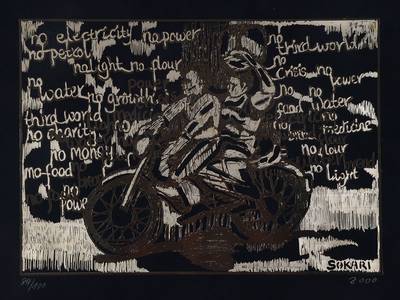 no electricity no power
no petrol
no light no flour
no
water no growth
third world
no charity
no money
no food
no
power
no
third world
no
crisis no no
no power
food water
no no medicine
no
no flour
no light
SOKARI
2000